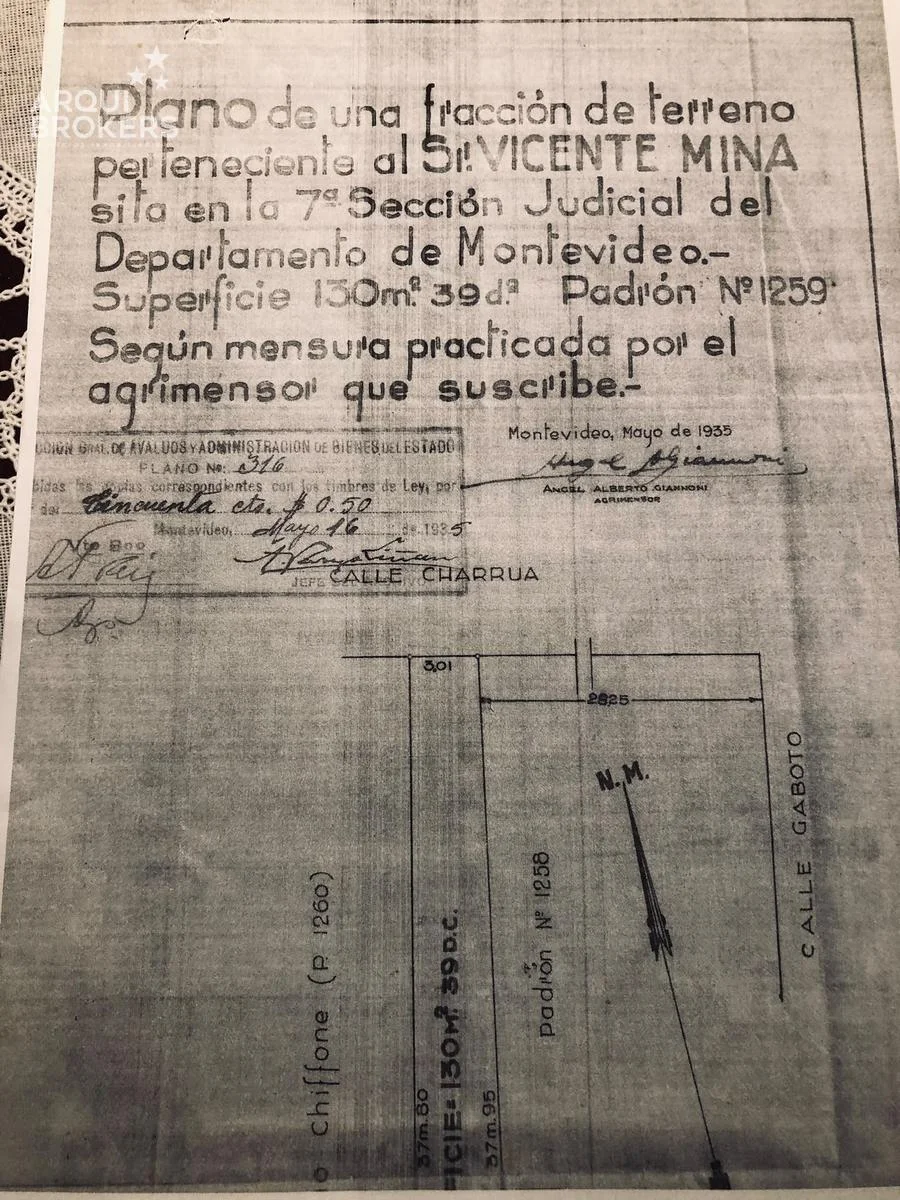 ARQUI
BROKERS
Plano de una fracción de terreno
perteneciente al Sr. VICENTE MINA
sita en la 7ª Sección Judicial del
Departamento de Montevideo.-
Superficie 130m.² 39d.² Padrón Nº 1259
Según mensura practicada por el
agrimensor que suscribe.-
Montevideo, Mayo de 1935
ANGEL ALBERTO GIANNONI
AGRIMENSOR
CCIÓN GRAL. DE AVALUOS Y ADMINISTRACION DE BIENES DEL ESTADO
PLANO Nº 316
copias correspondientes con los timbres de Ley, por
de: Cincuenta cts. $ 0.50
Montevideo, Mayo 16 de 1935
Vto Bno
JEFE
CALLE CHARRUA
3,01
26,25
N.M.
CALLE GABOTO
padrón Nº 1258
o Chiffone (P. 1260)
37m.80
FICIE= 130M.² 39D.C.
37m.95